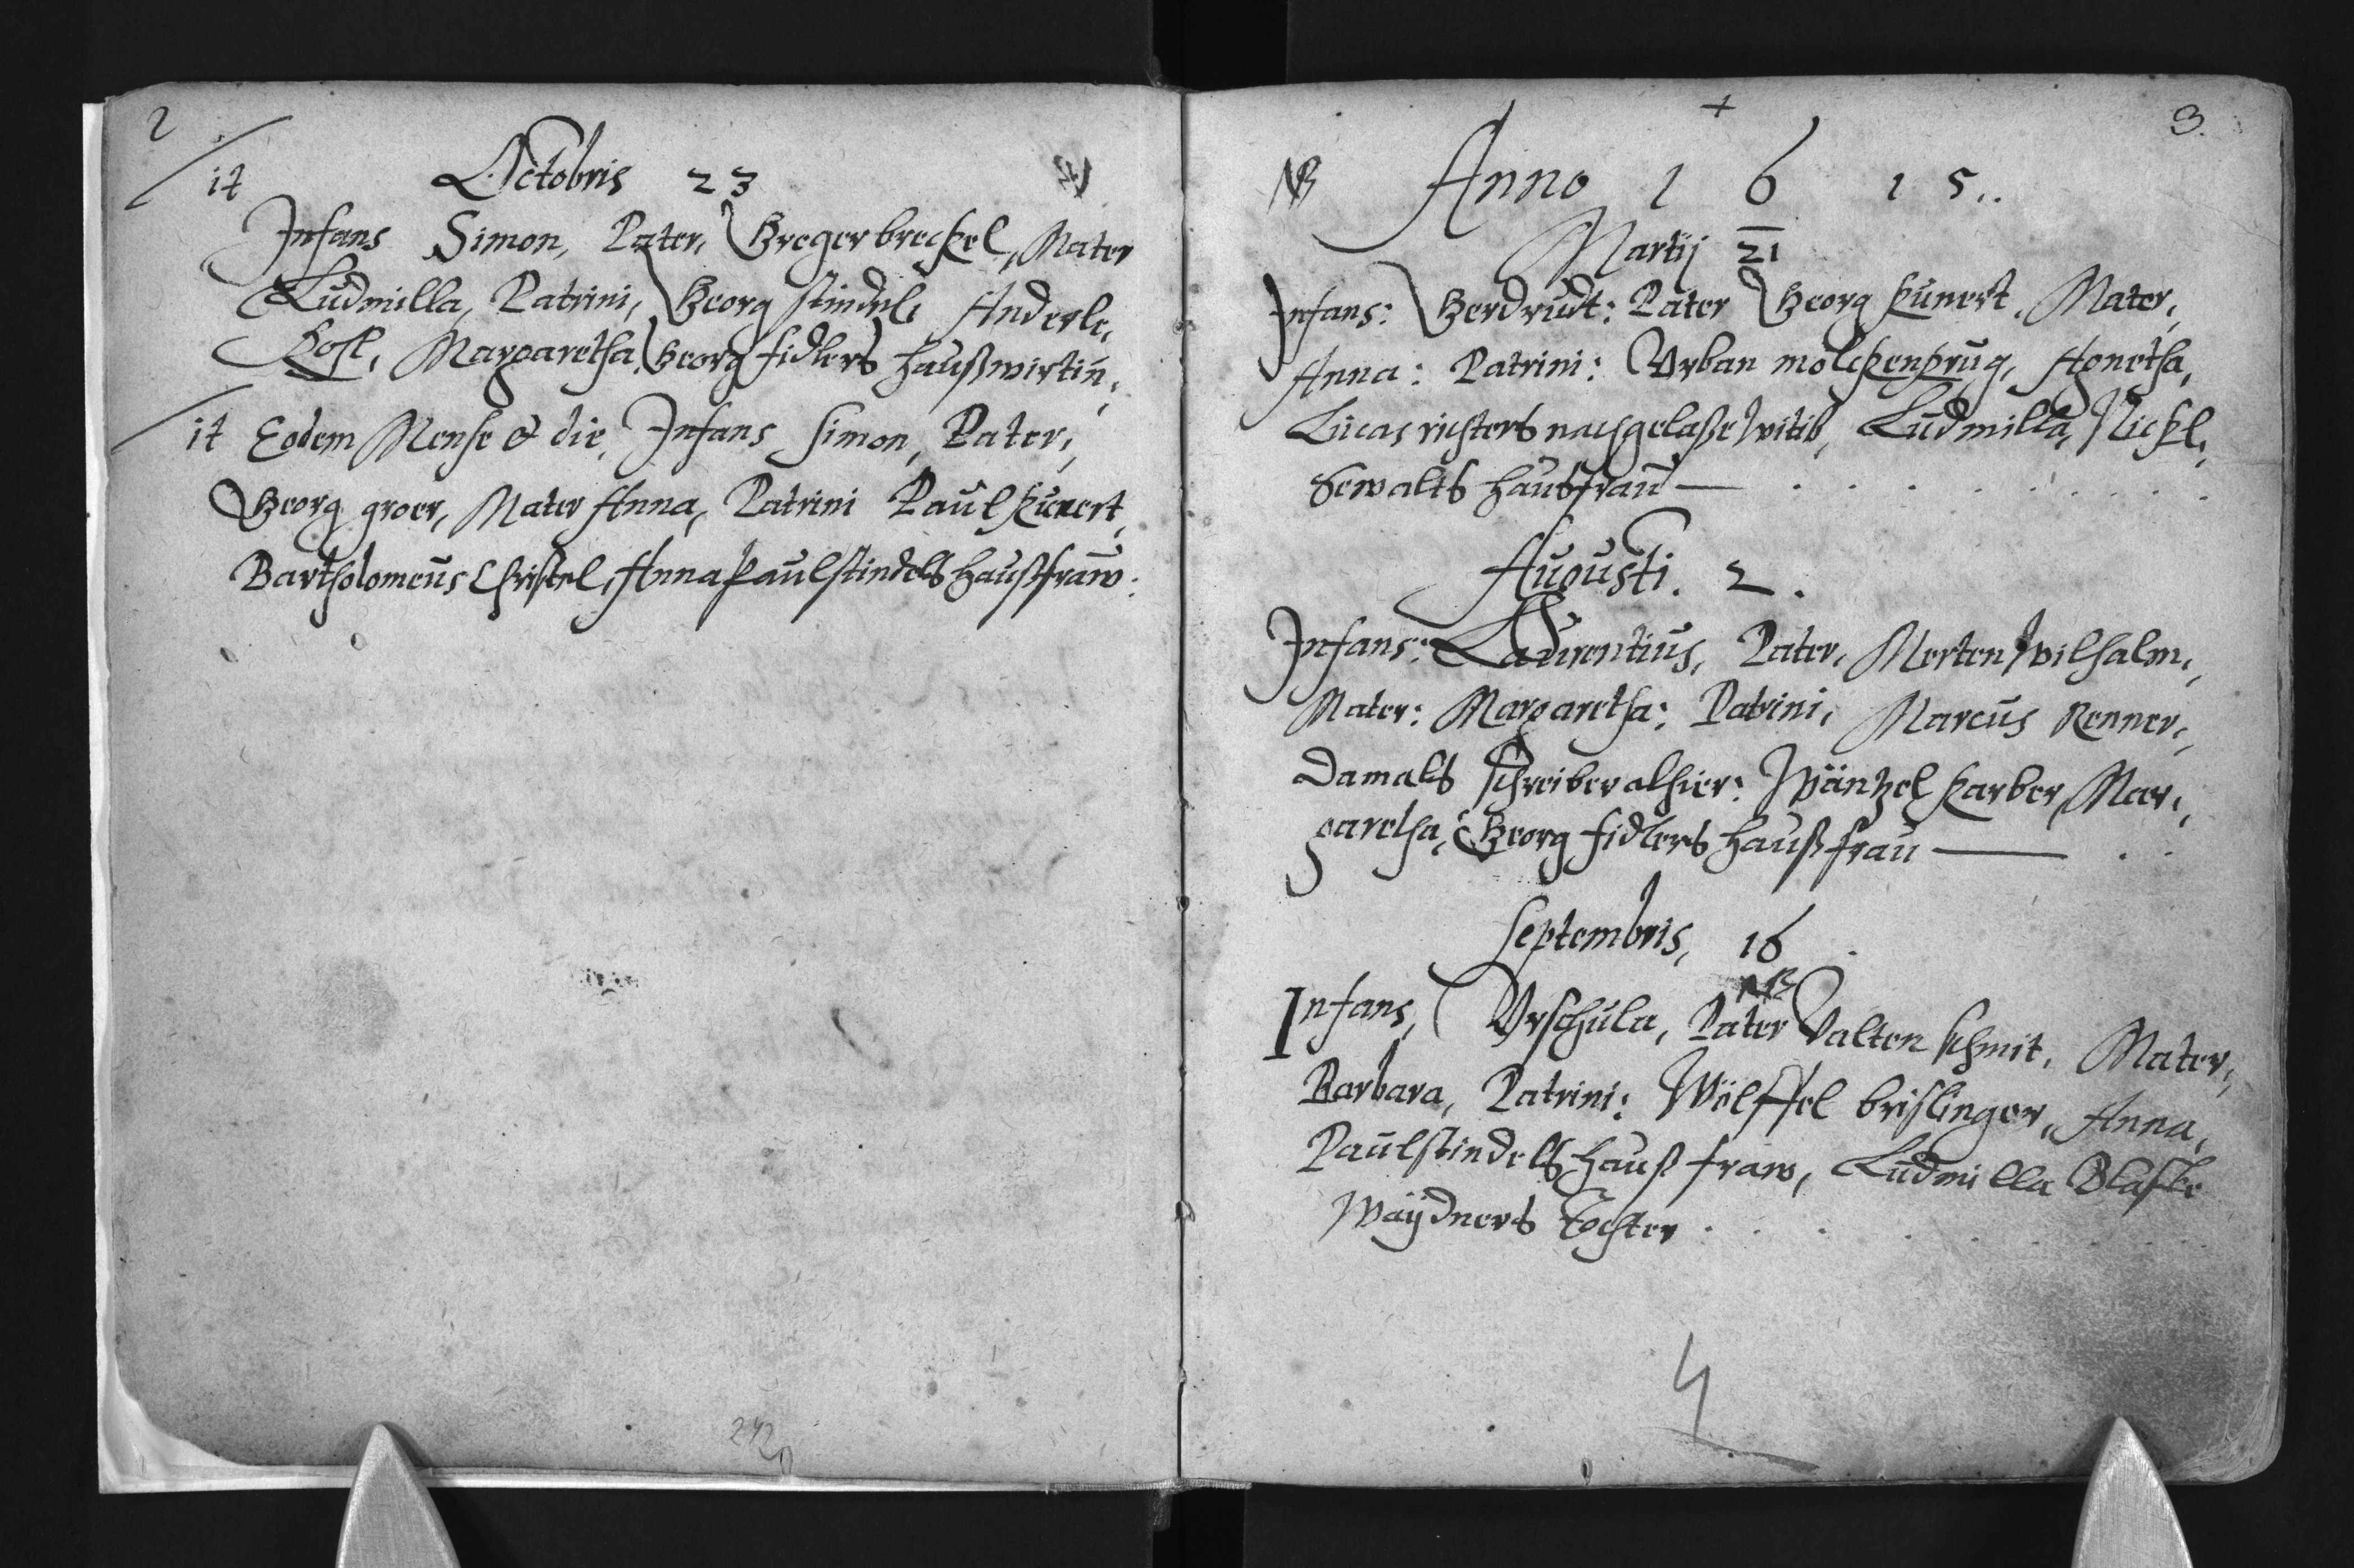 2
it Octobris 23
Infans Simon, Pater, Greger breckel, Mater
Ludmilla, Patrini, Georg stindel, Anderle,
Margaretha, Georg fidlers haußwirtin,
it Eodem Mense & die, Infans Simon, Pater,
Georg groer, Mater Anna, Patrini Paul kunert,
Bartholomeus Christel, Anna Paul stindels haußfraw:
242
3.
NB Anno 1 6 1 5..
Martij 21
Infans: Gerdrudt: Pater Georg kunert, Mater,
Anna: Patrini: Urban molckenkrug, Agnetha,
Lucas richters nachgelaße witib, Ludmilla, Nickl,
Sewalts hausfrau
Augusti. 2.
Infans: Laurentius, Pater, Merten wilhalm,
Mater: Margaretha: Patrini, Marcus Renner,
damals schreiber alhier: Wäntzel karber, Mar,
garetha, Georg fidlers haußfrau
Septembris, 16
NB
Infans, Urschula, Pater Valten schmit, Mater,
Barbara, Patrini: Wölffel brislinger, Anna,
Paul stindels hauß fraw, Ludmilla Blaske
Waÿdners Tochter
4